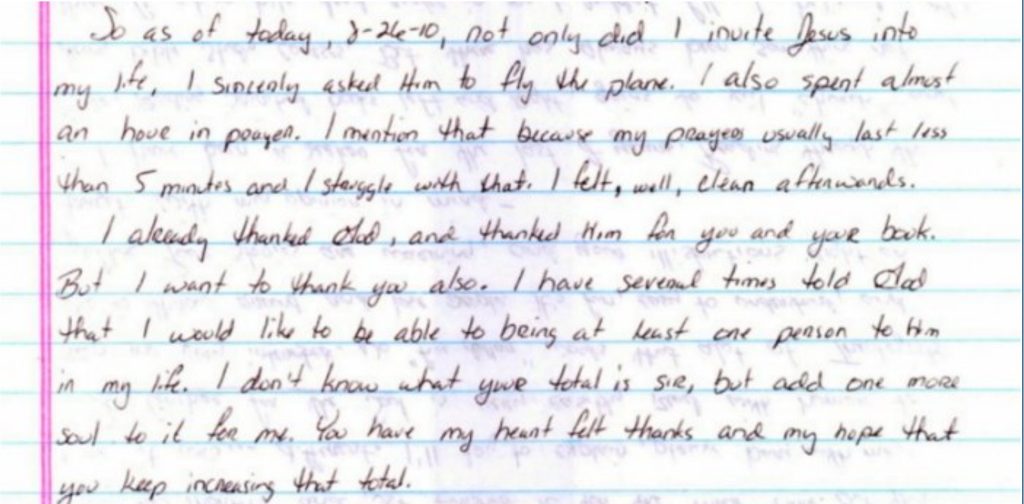 So as of today, 2-26-10, not only did I invite Jesus into
my life, I sincerly asked Him to fly the plane. I also spent almost
an hour in prayer. I mention that because my prayers usually last less
than 5 minutes and I struggle with that. I felt, well, clean afterwards.
I already thanked God, and thanked Him for you and your book.
But I want to thank you also. I have several times told God
that I would like to be able to bring at least one person to him
in my life. I don't know what your total is sir, but add one more
soul to it for me. You have my heart felt thanks and my hope that
you keep increasing that total.